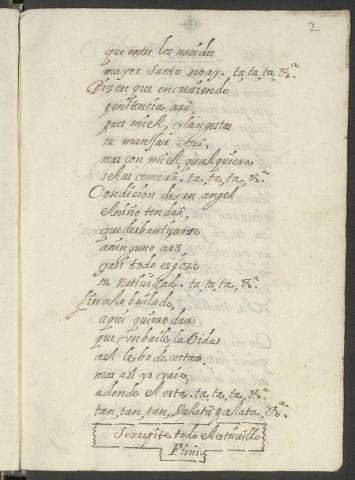 2
que entre los nacidos
mayor santo no ay. ta, ta, ta, &c.ª
Dizen que en creciendo
penitencia ara,
pues miel, y langostas
su manjar sera.
mas con miel qualquiera
se las comera. ta, ta, ta, &c.ª
Condicion de un angel
el niño tendra,
que desbautizarse
a ninguno ara
pari todo es gozo
su natiuidad. ta, ta, ta, &c.ª
Lindo bailado,
aqui quiero dar
que un baile la Vida
a el le ha de costar.
mas asi yo vaia,
a donde el esta. ta, ta, ta, &c.ª
tan, tan, tan, palata palata, &c.ª
Se repite todo el estriuillo
Finis